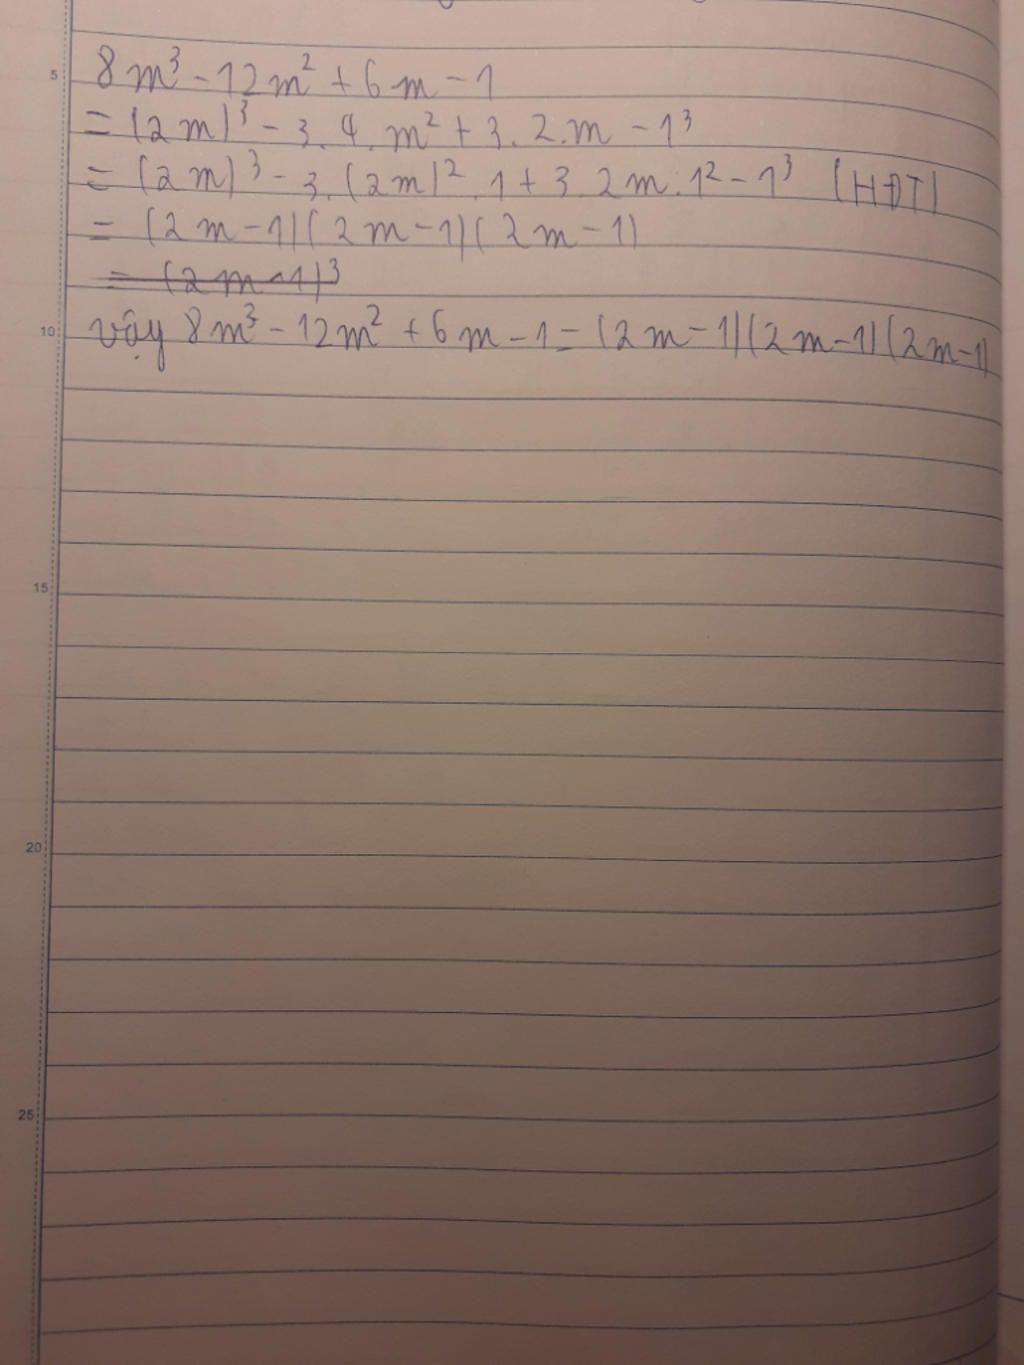 5
8m³ - 12m² + 6m - 1
= (2m)³ - 3.4.m² + 3.2.m - 1³
= (2m)³ - 3.(2m)².1 + 3.2m.1² - 1³ (HĐT)
= (2m-1)(2m-1)(2m-1)
= (2m-1)³
10
vậy 8m³ - 12m² + 6m - 1 = (2m-1)(2m-1)(2m-1)
15
20
25